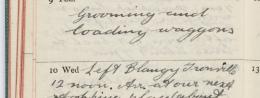 Grooming and
loading waggons
10 Wed Left Blangy Tronville
12 noon. Arr. at our next